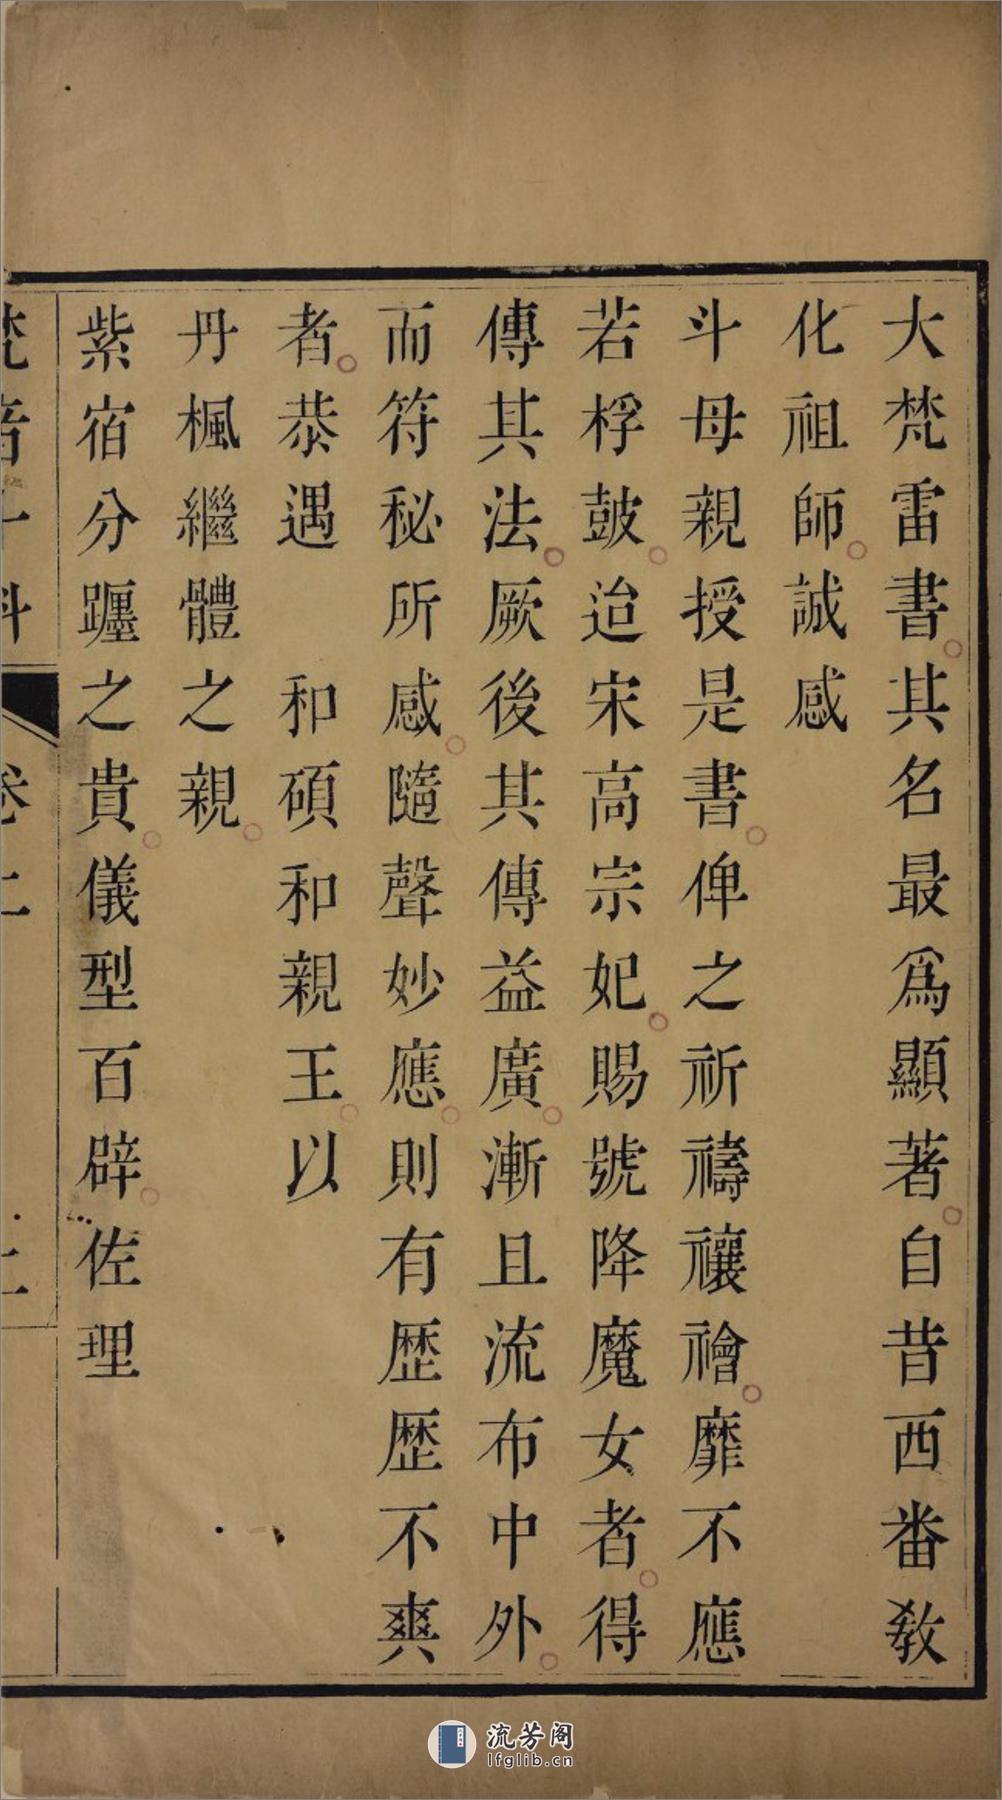 大梵雷書其名最爲顯著自昔西番教
化祖師誠感
斗母親授是書俾之祈禱禳禬靡不應
若桴鼓迨宋高宗妃賜號降魔女者得
傳其法厥後其傳益廣漸且流布中外
而符秘所感隨聲妙應則有歷歷不爽
者恭遇 和碩和親王以
丹楓繼體之親
紫宿分躔之貴儀型百辟佐理
梵音斗科 卷上 上
流芳阁
lfglib.cn